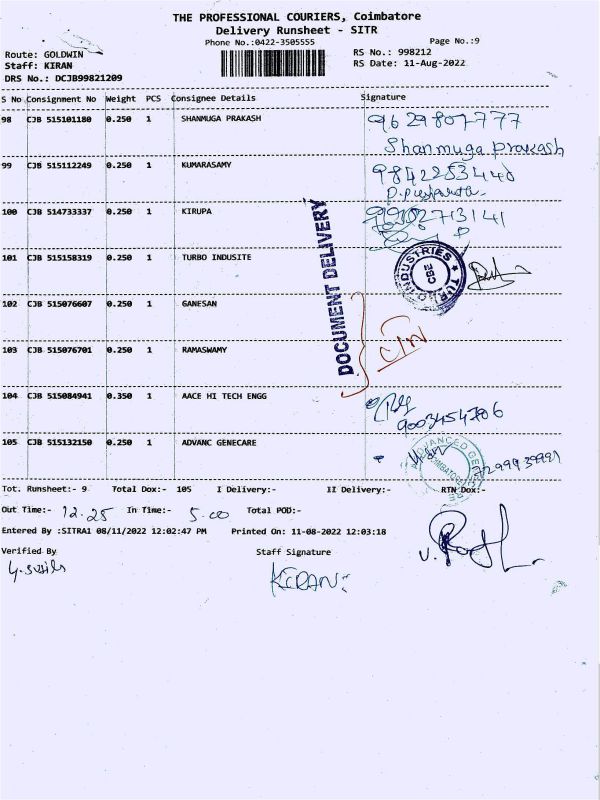 THE PROFESSIONAL COURIERS, Coimbatore
Delivery Runsheet - SITR
Phone No.:0422-3505555 Page No.:9
Route: GOLDWIN RS No.: 998212
Staff: KIRAN RS Date: 11-Aug-2022
DRS No.: DCJB99821209
S No Consignment No Weight PCS Consignee Details Signature
98 CJB 515101180 0.250 1 SHANMUGA PRAKASH 9629807777
Shanmuga Prakash
99 CJB 515112249 0.250 1 KUMARASAMY 9842253440
100 CJB 514733337 0.250 1 KIRUPA
101 CJB 515158319 0.250 1 TURBO INDUSITE
TURBO INDUSTRIES ★
CBE
DOCUMENT DELIVERY
102 CJB 515076607 0.250 1 GANESAN
103 CJB 515076701 0.250 1 RAMASWAMY
104 CJB 515084941 0.350 1 AACE HI TECH ENGG
9003454706
105 CJB 515132150 0.250 1 ADVANC GENECARE
COIMBATORE
Tot. Runsheet:- 9 Total Dox:- 105 I Delivery:- II Delivery:- RTN Dox:-
Out Time:- 12.25 In Time:- 5.00 Total POD:-
Entered By :SITRA1 08/11/2022 12:02:47 PM Printed On: 11-08-2022 12:03:18
Verified By Staff Signature
KIRAN